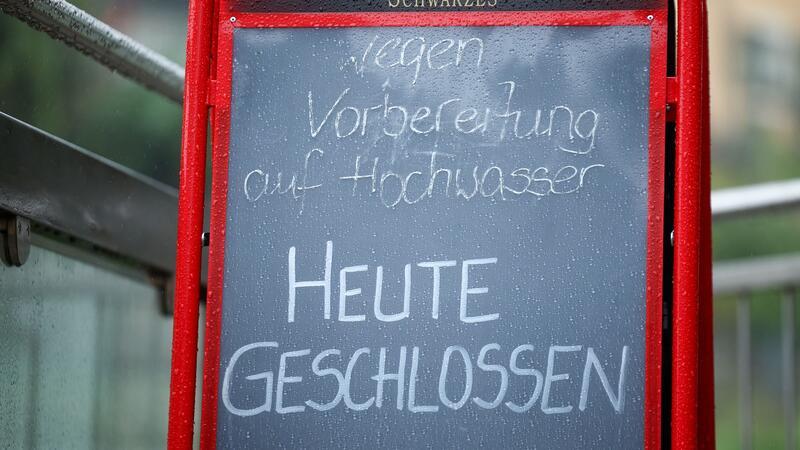 SCHWARZES
wegen
Vorbereitung
auf Hochwasser
HEUTE
GESCHLOSSEN